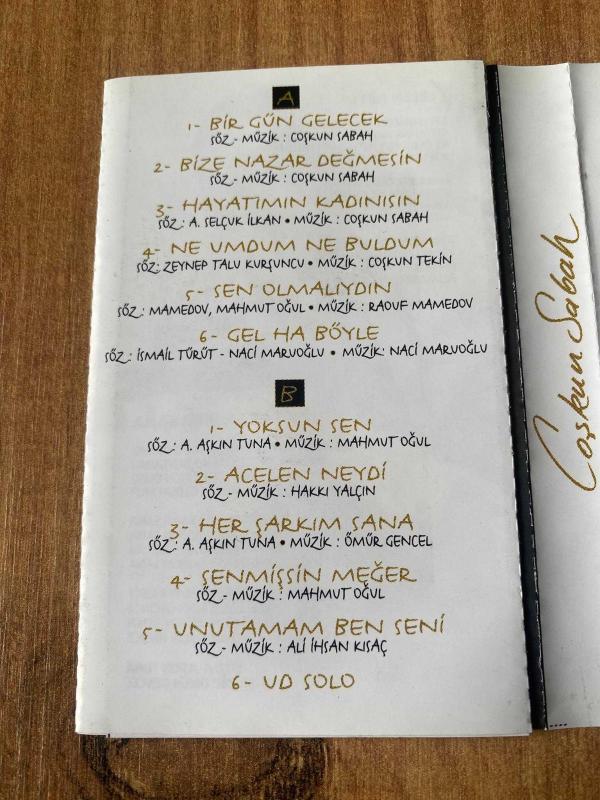 A
1- BİR GÜN GELECEK
SÖZ - MÜZİK : COŞKUN SABAH
2- BİZE NAZAR DEĞMESİN
SÖZ - MÜZİK : COŞKUN SABAH
3- HAYATIMIN KADINISIN
SÖZ : A. SELÇUK İLKAN • MÜZİK : COŞKUN SABAH
4- NE UMDUM NE BULDUM
SÖZ: ZEYNEP TALU KURŞUNCU • MÜZİK : COŞKUN TEKİN
5- SEN OLMALIYDIN
SÖZ : MAMEDOV, MAHMUT OĞUL • MÜZİK : RAOUF MAMEDOV
6- GEL HA BÖYLE
SÖZ : İSMAİL TÜRÜT - NACİ MARUOĞLU • MÜZİK: NACİ MARUOĞLU
B
1- YOKSUN SEN
SÖZ : A. AŞKIN TUNA • MÜZİK : MAHMUT OĞUL
2- ACELEN NEYDİ
SÖZ - MÜZİK : HAKKI YALÇIN
3- HER ŞARKIM SANA
SÖZ : A. AŞKIN TUNA • MÜZİK : ÖMÜR GENCEL
4- SENMİŞSİN MEĞER
SÖZ - MÜZİK : MAHMUT OĞUL
5- UNUTAMAM BEN SENİ
SÖZ - MÜZİK : ALİ İHSAN KISAÇ
6- UD SOLO
Coşkun Sabah